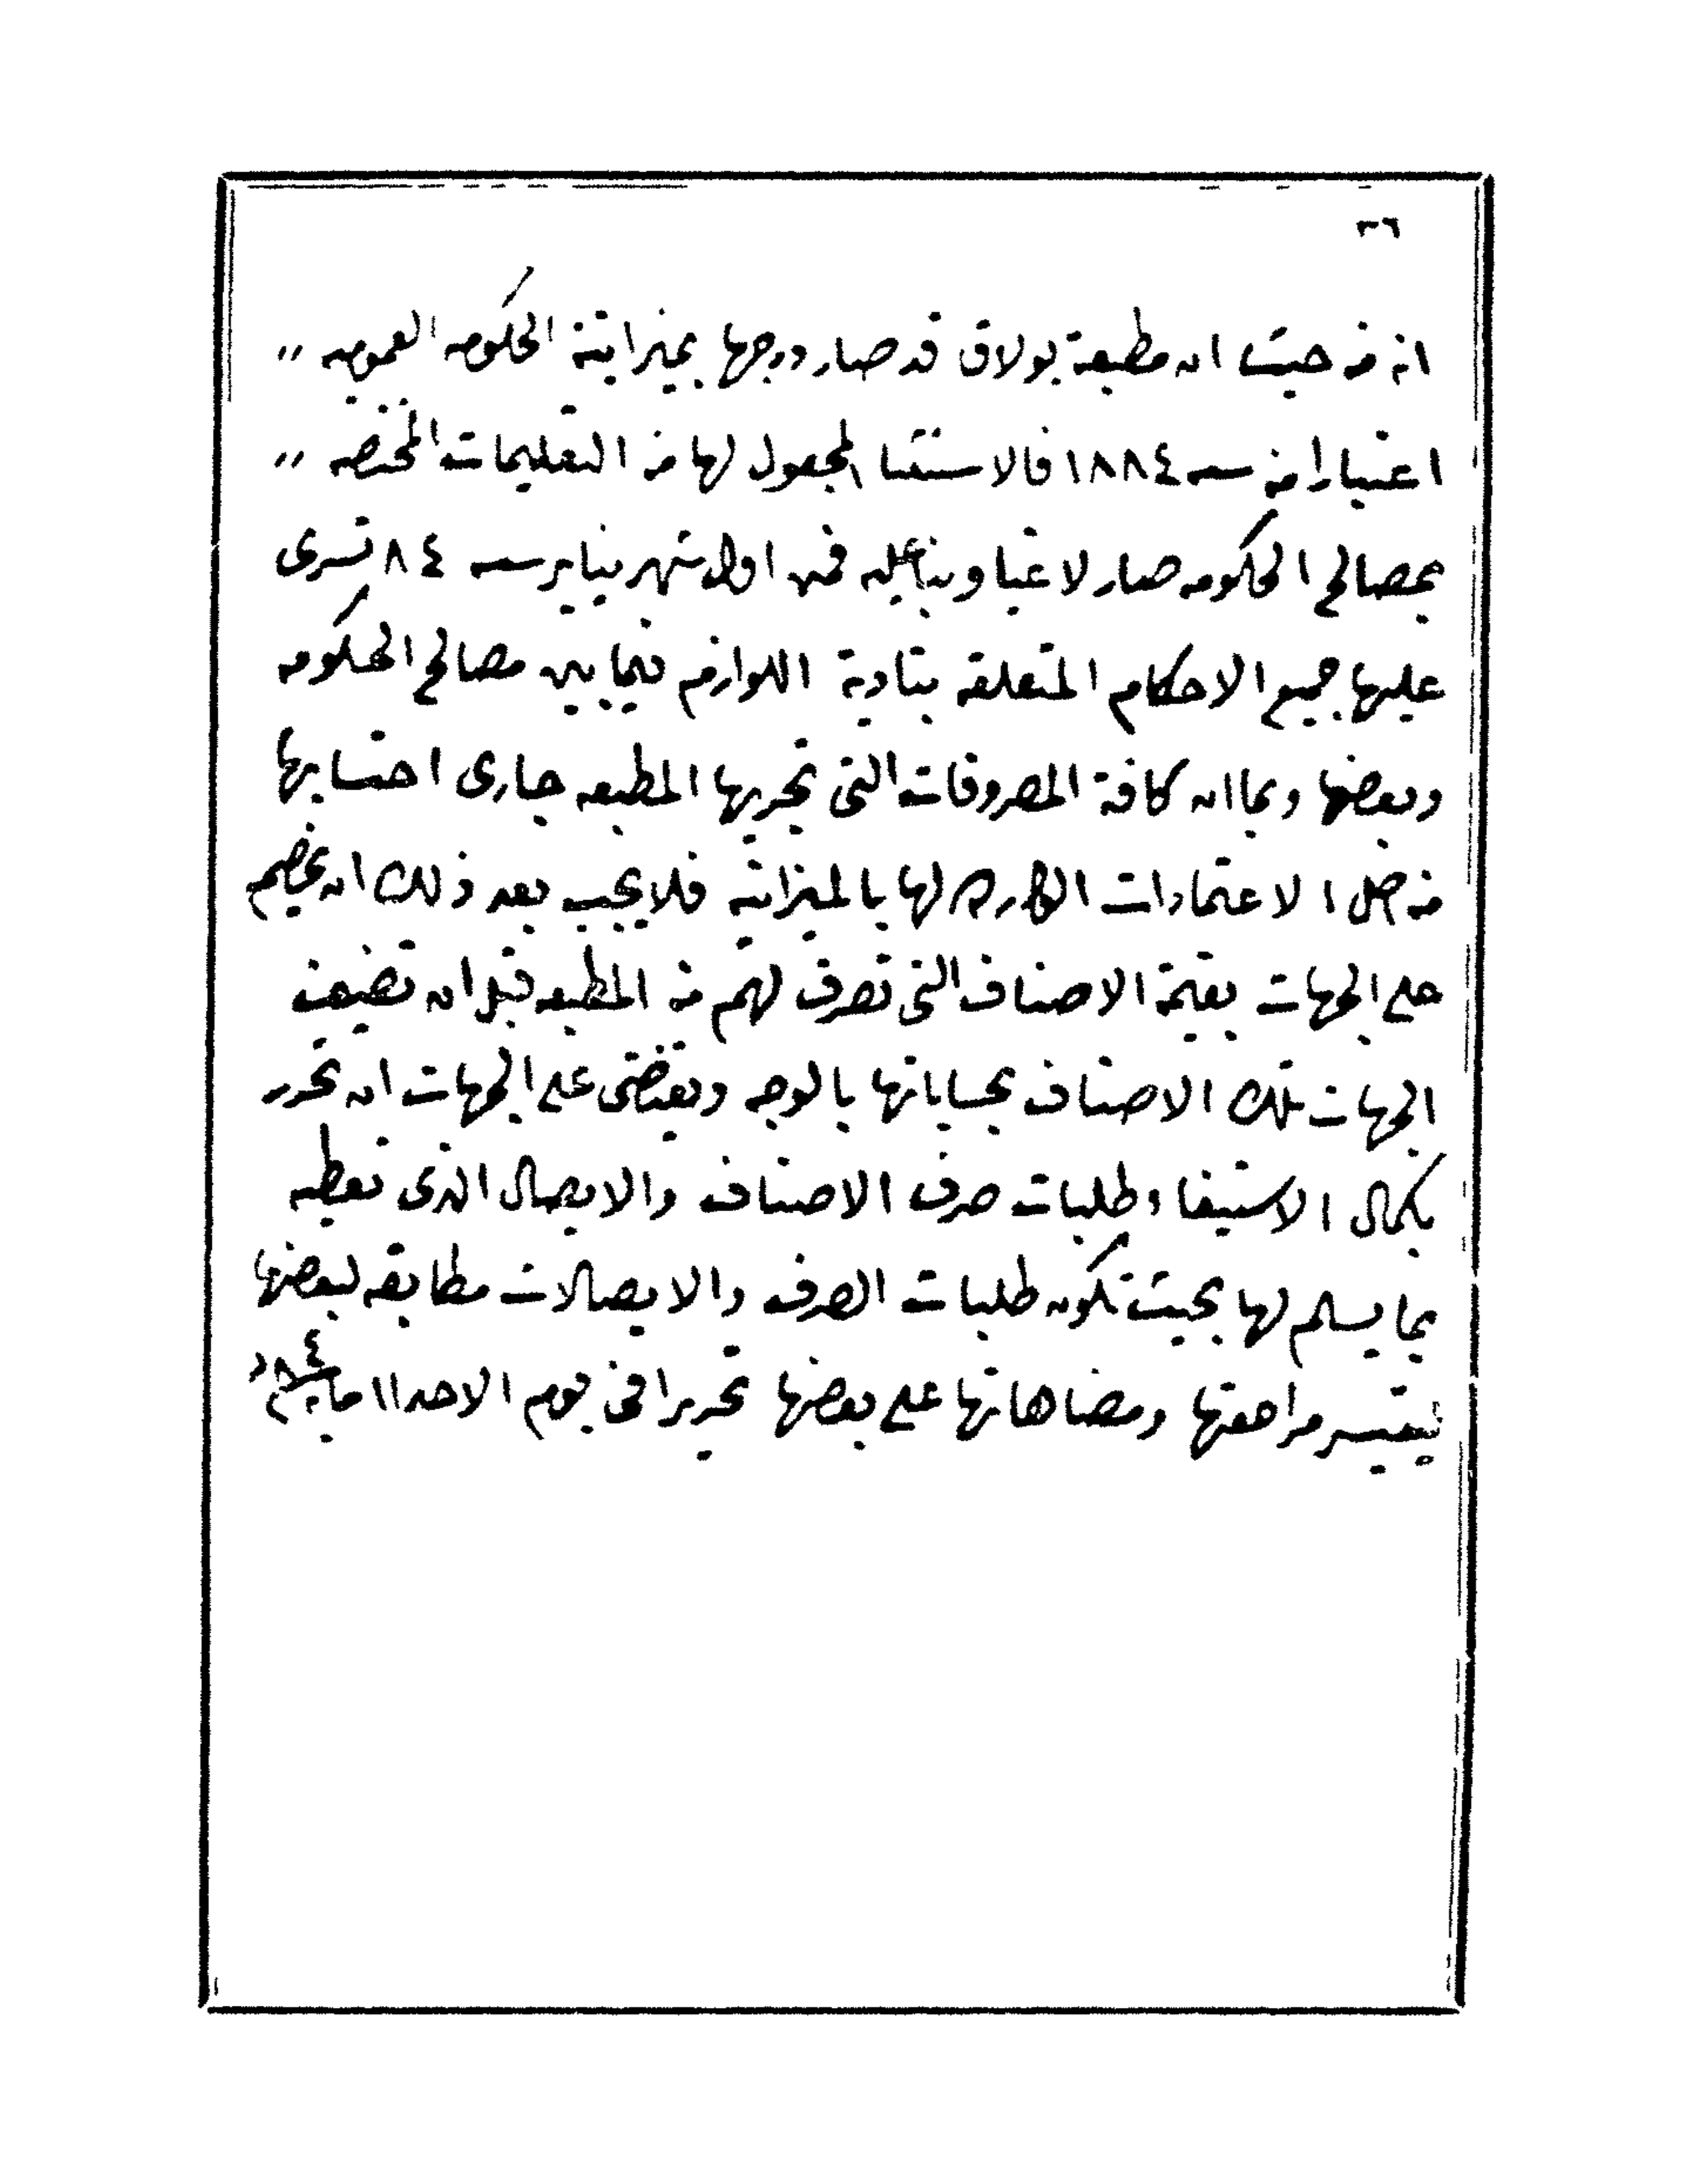 ٣٦
انه من حيث ان مطبعة بولاق قد صار درجها بميزانية الحكومه العموميه ,,
اعتبارا من سنه ١٨٨٤ فالاستثنا المجعول لها من التعليمات المختصه ,,
بمصالح الحكومه صار لاغيا وبناعليه فمن اول شهر يناير سنه ٨٤ تسرى
عليها جميع الاحكام المتعلقه بتادية اللوازم فيما بين مصالح الحكومه
وبعضها وبما ان كافة المصروفات التى تجريها المطبعه جارى احتسابها
من اصل الاعتمادات لها بالميزانيه فلا يجب بعد ذلك ان يخصم
على الجهات بقيمة الاصناف التى تصرف لهم من المطبعه قبل ان تضيف
الجهات تلك الاصناف بحساباتها بالوجه ويقتضى على الجهات ان تحرر
بكمال الاستيفا طلبات صرف الاصناف والايصال الذى تعطيه
بما يسلم لها بحيث تكون طلبات الصرف والايصالات مطابقه لبعضها
ليتيسر مراجعتها ومضاهاتها على بعضها تحريرا فى يوم الاحد ١١ مايه ٨٤